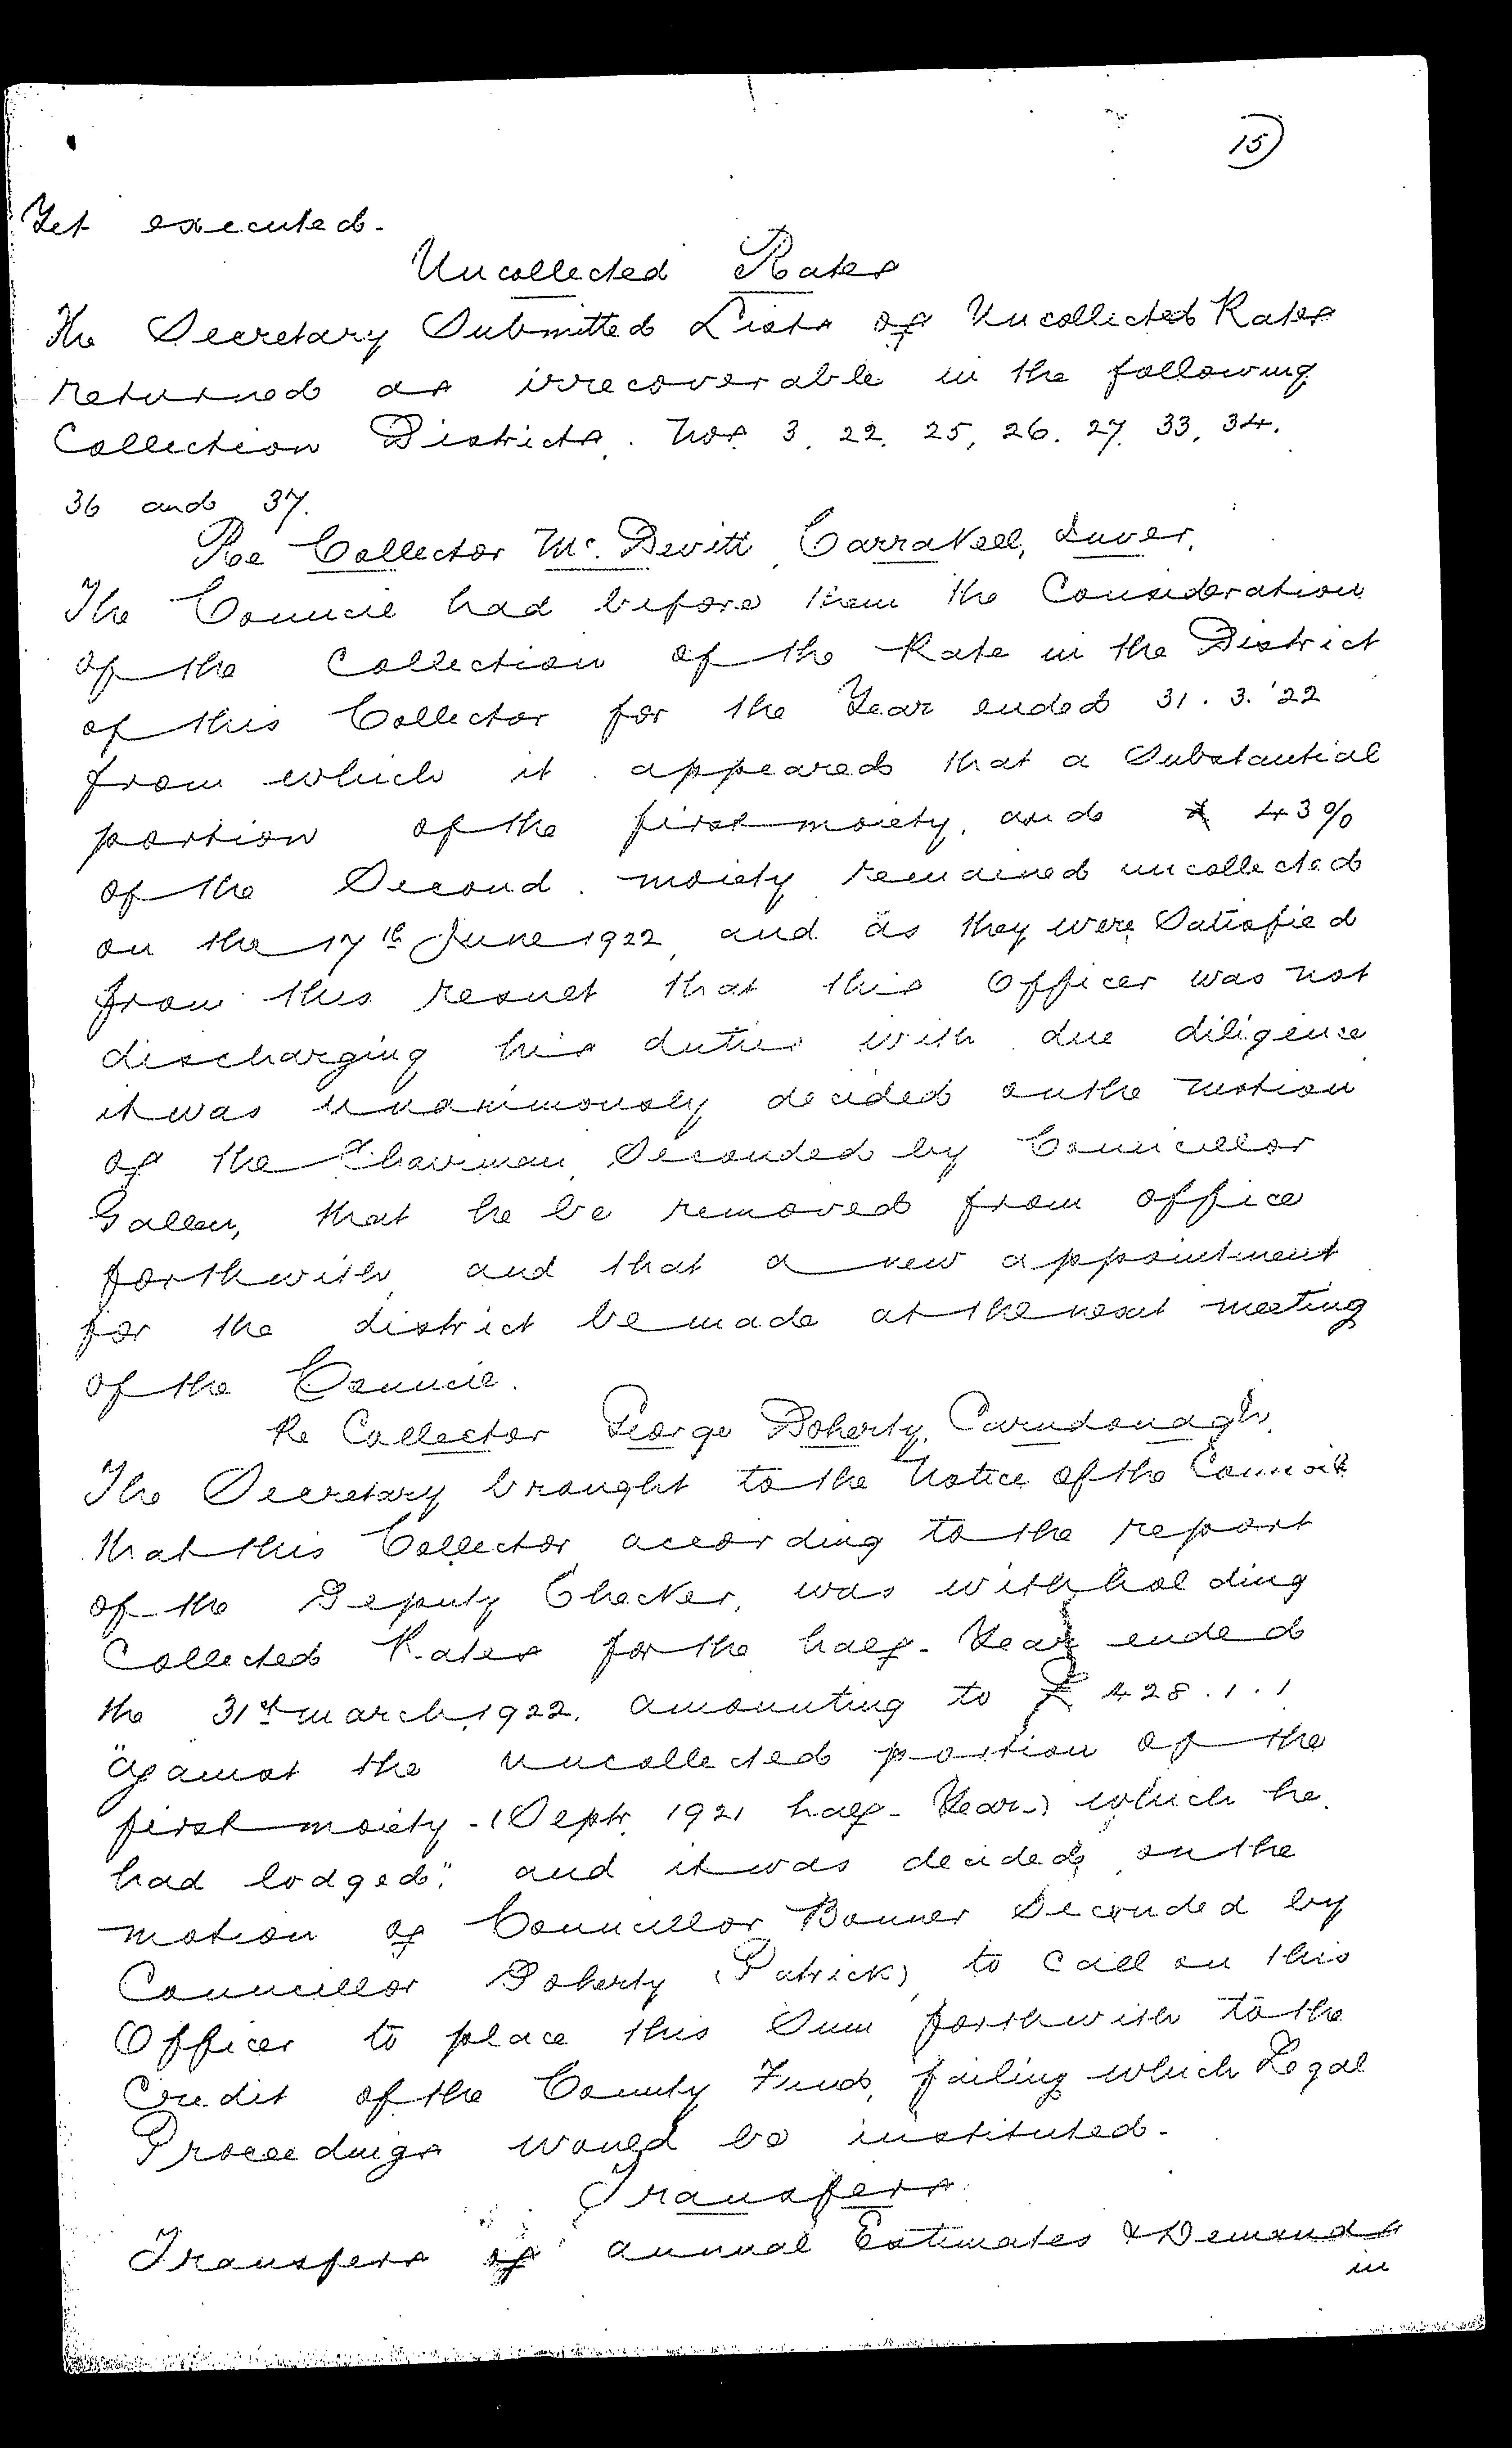 15)
Yet executed.
Uncollected Rates
The Secretary Submitted Lists of Uncollected Rates
returned as irrecoverable in the following
Collection Districts. Nos. 3, 22, 25, 26, 27, 33, 34,
36 and 37.
Re Collector Mc. Devitt, Carrakeel, Inver.
The Council had before them the Consideration
of the Collection of the Rate in the District
of this Collector for the Year ended 31.3.'22
from which it appeared that a Substantial
portion of the first moiety, and 43%
of the Second moiety remained uncollected
on the 17th June 1922, and as they were Satisfied
from this result that this Officer was not
discharging his duties with due diligence
it was unanimously decided on the motion
of the Chairman, Seconded by Councillor
Gallen, that he be removed from office
forthwith, and that a new appointment
for the district be made at the next meeting
of the Council.
Re Collector George Doherty, Carndonagh.
The Secretary brought to the Notice of the Council
that this Collector, according to the report
of the Deputy Checker, was withholding
Collected Rates for the half-Year ended
the 31st March, 1922, amounting to £428.1.1
"against the uncollected portion of the
first moiety - (Septr. 1921 half-Year) which he
had lodged." and it was decided, on the
motion of Councillor Bonner Seconded by
Councillor Doherty (Patrick), to call on this
Officer to place this Sum forthwith to the
Credit of the County Fund, failing which Legal
Proceedings would be instituted.
Transfers
Transfers of annual Estimates & Demands
in